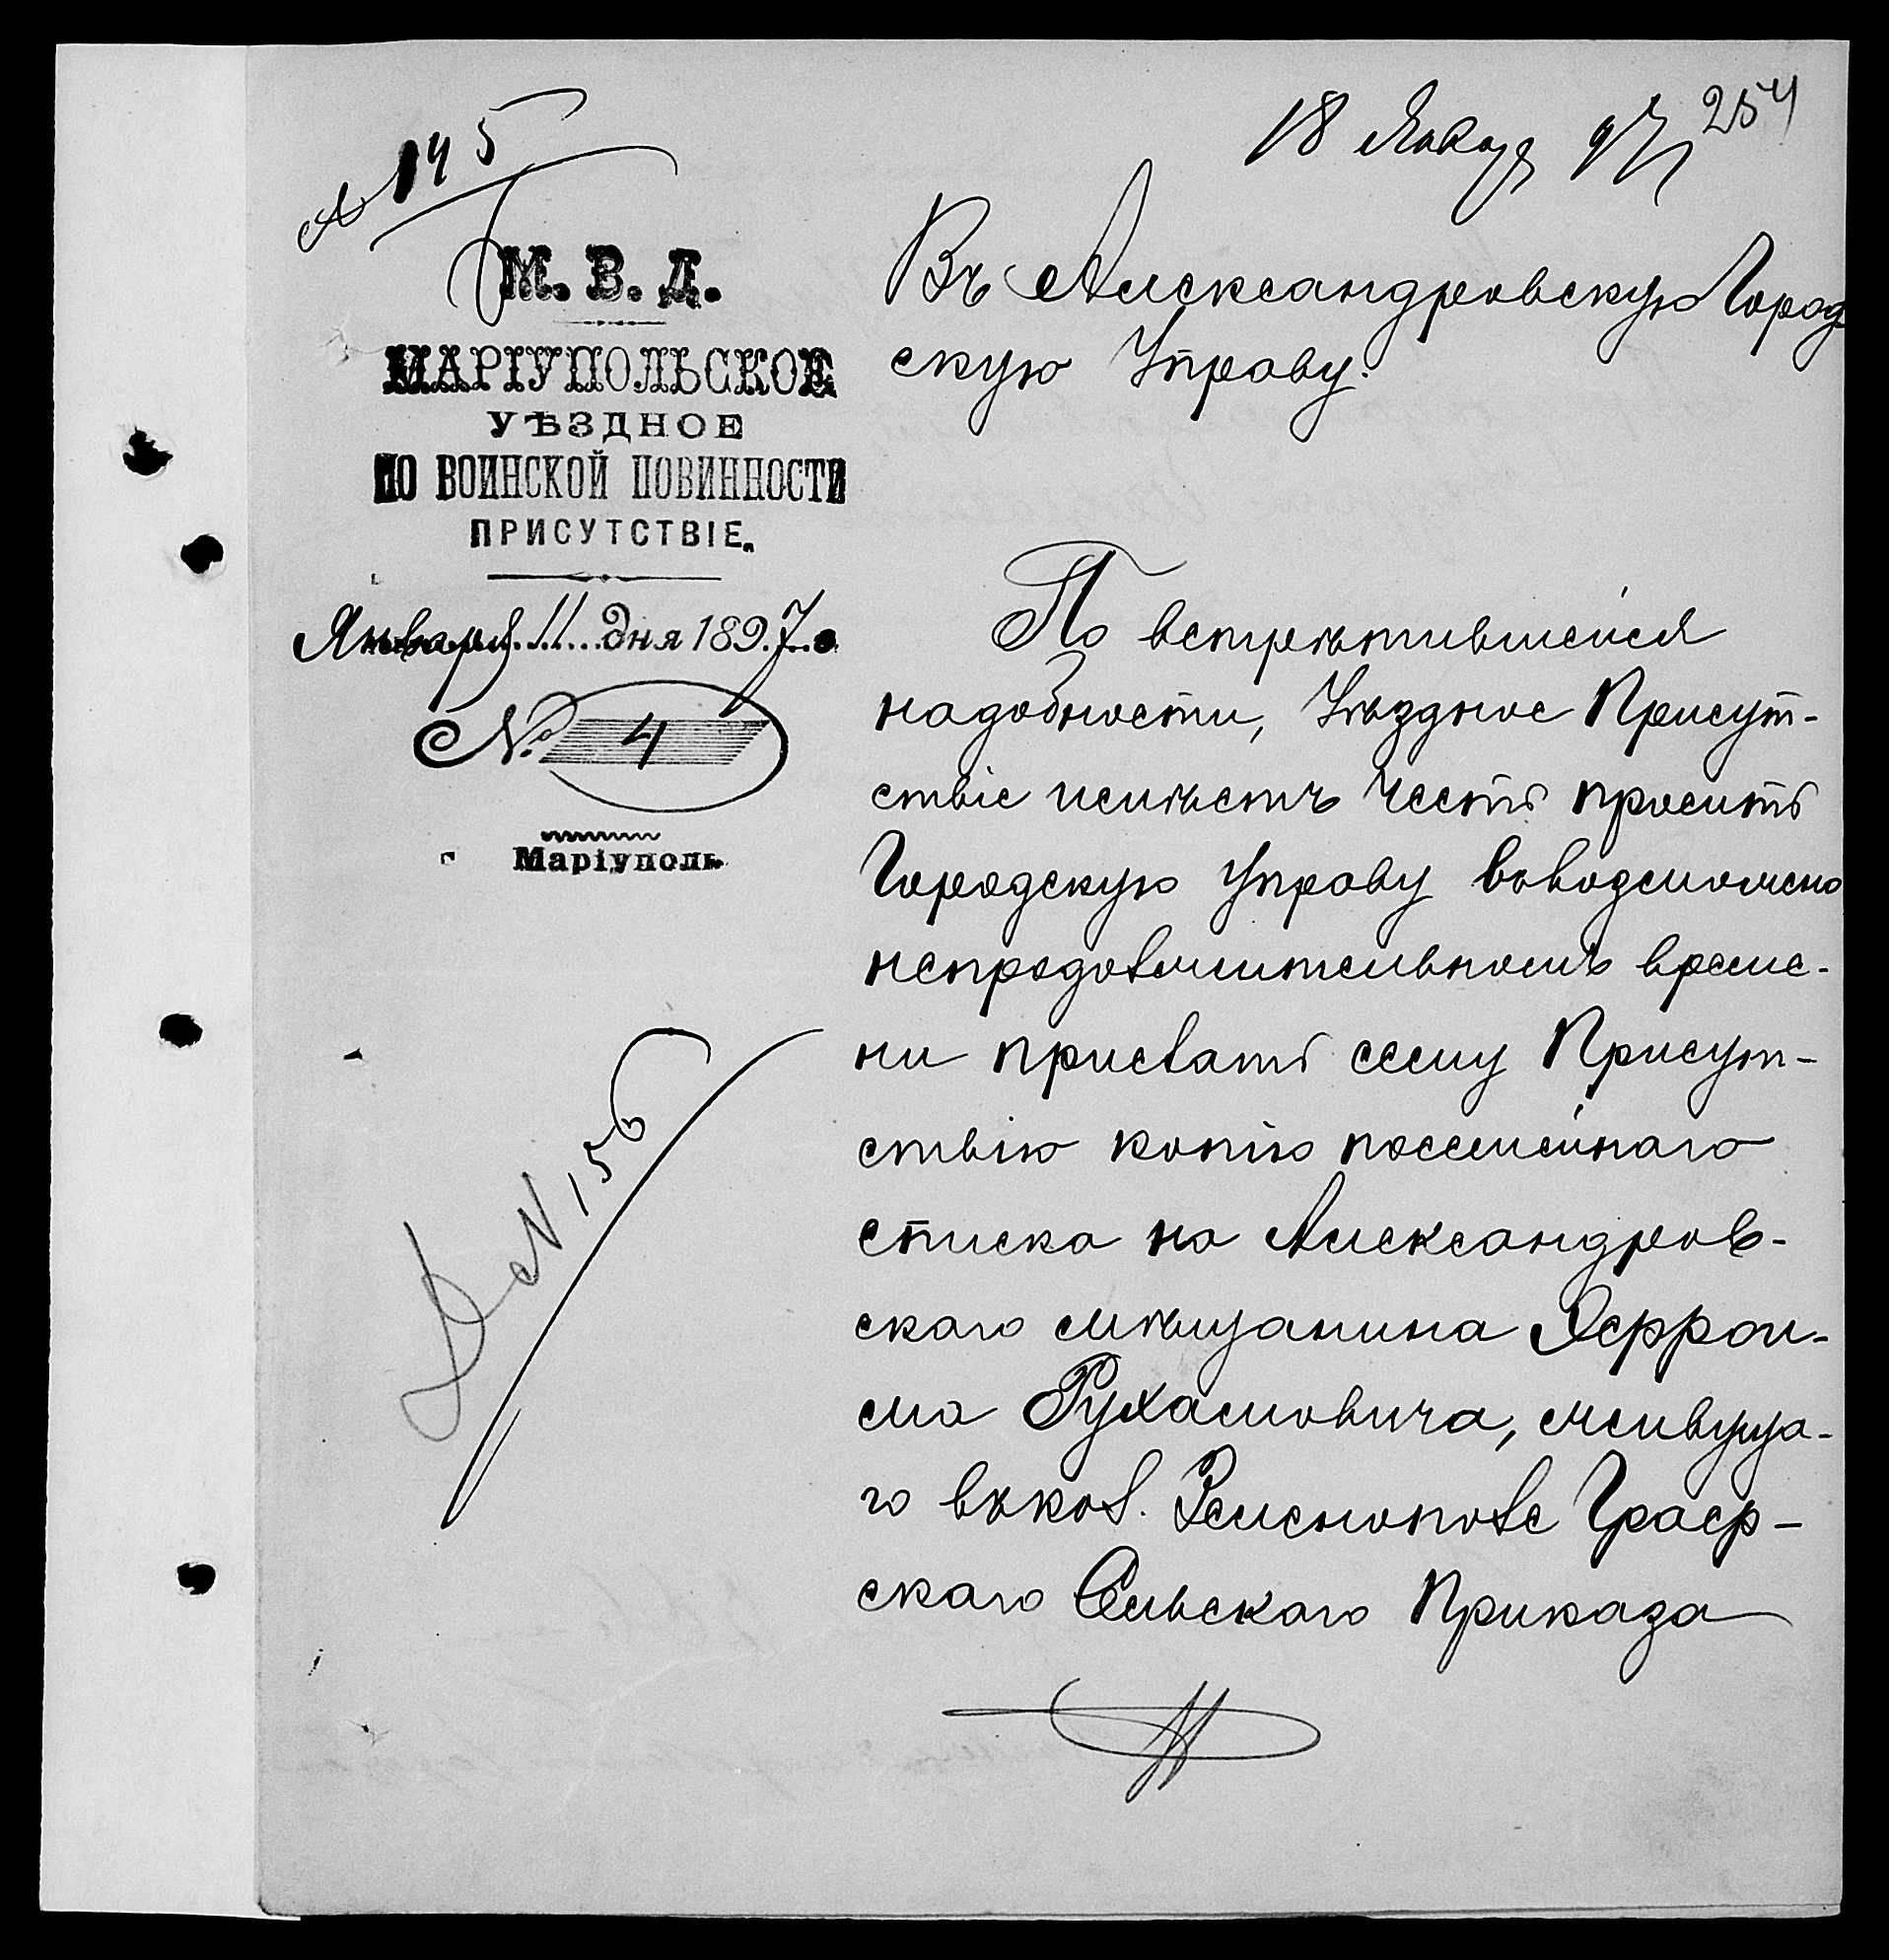 18 Января 97 254
№ 145
М. В. Д.
МАРІУПОЛЬСКОЕ
УѢЗДНОЕ
ПО ВОИНСКОЙ ПОВИННОСТИ
ПРИСУТСТВІЕ.
Января 11 дня 1897 г.
№ 4
г. Маріуполь
Въ Александровскую Город
скую Управу.
По встрѣтившейся
надобности, Уѣздное Присут-
ствіе имѣетъ честь просить
Городскую Управу
непродолжительномъ време-
ни прислать сему Присут-
ствію копію посемейнаго
списка на Александров-
скаго мѣщанина
ма Рухамовича, живуща-
го въ кол. Зеленополе Граф-
скаго Сельскаго Приказа
№ 156